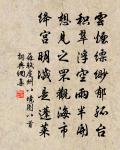 雲煙縹緲郁孤台
積翠浮空雨半開
想見之罘觀海市
絳宮明滅是蓬萊
蘇軾虔州八境圖八首
詞典網集